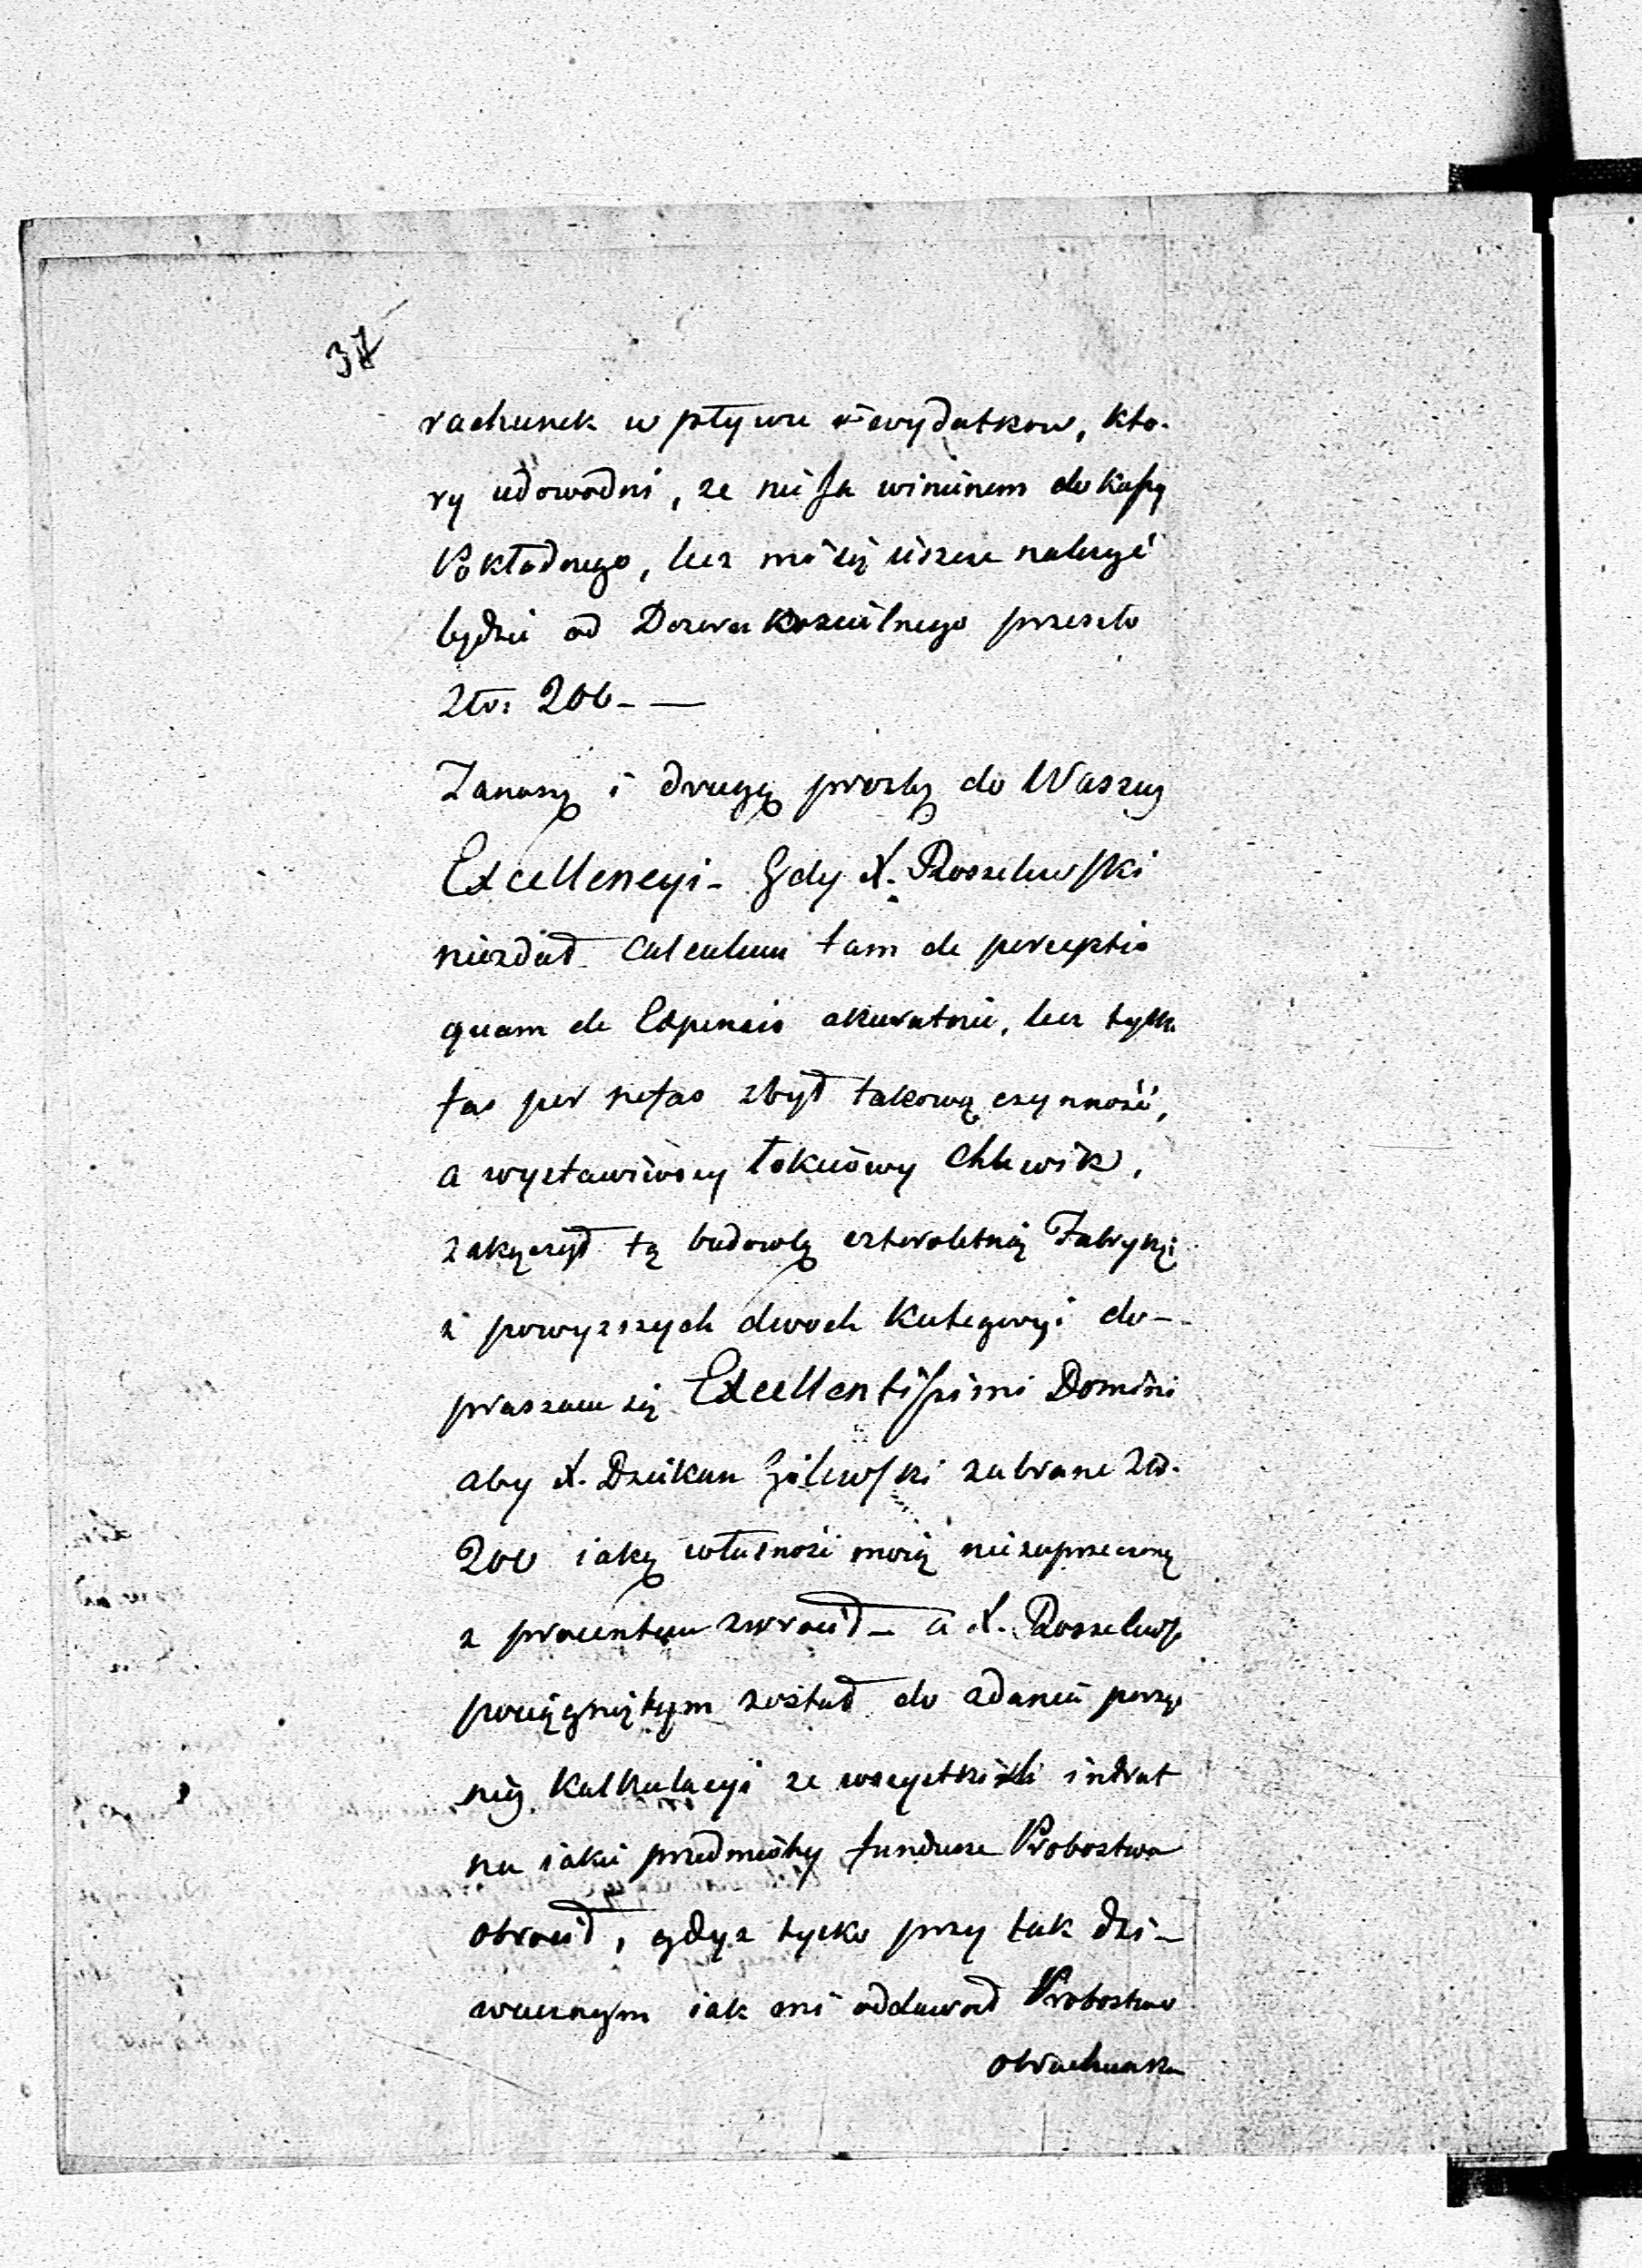 37
rachunek w pływu i wydatkow, kto-
ry udowodni, ze nie Ja winienem do Kassy
Pokładnego, lecz mo się ieszcze nalezyć
będzie od Dozoru Koscielnego przeszło
Zło: 200 - —
Zanoszę i drugę prozbę do Waszey
Excellencyi - Gdy X. Roszelewski
niezdał calculum tam de perceptis
quam de Expensis akuratnie, lecz tylko
fas per nefas zbył takową czynność,
a wystawiwszy łokciowy Chlewik,
zakączył tą budowlę czteroletnią Fabrykę
z powyzszych dwoch Kategoryi do-
praszam się Excellentissimi Domini
aby X. Dziekan Gólewski zabrane Zł.
200 iaką własnosć moią niezaprzeczoną
z procentem zwrocił - a X. Roszelews
pociągniętym został do zdania porzą
niey Kalkulacyi ze wszystkich intrat
na iakie przedmioty fundusze Probostwa
obrocił, gdyz tycko przy tak dzi-
wacznym iak mi oddawał Probostwo
obrachunku